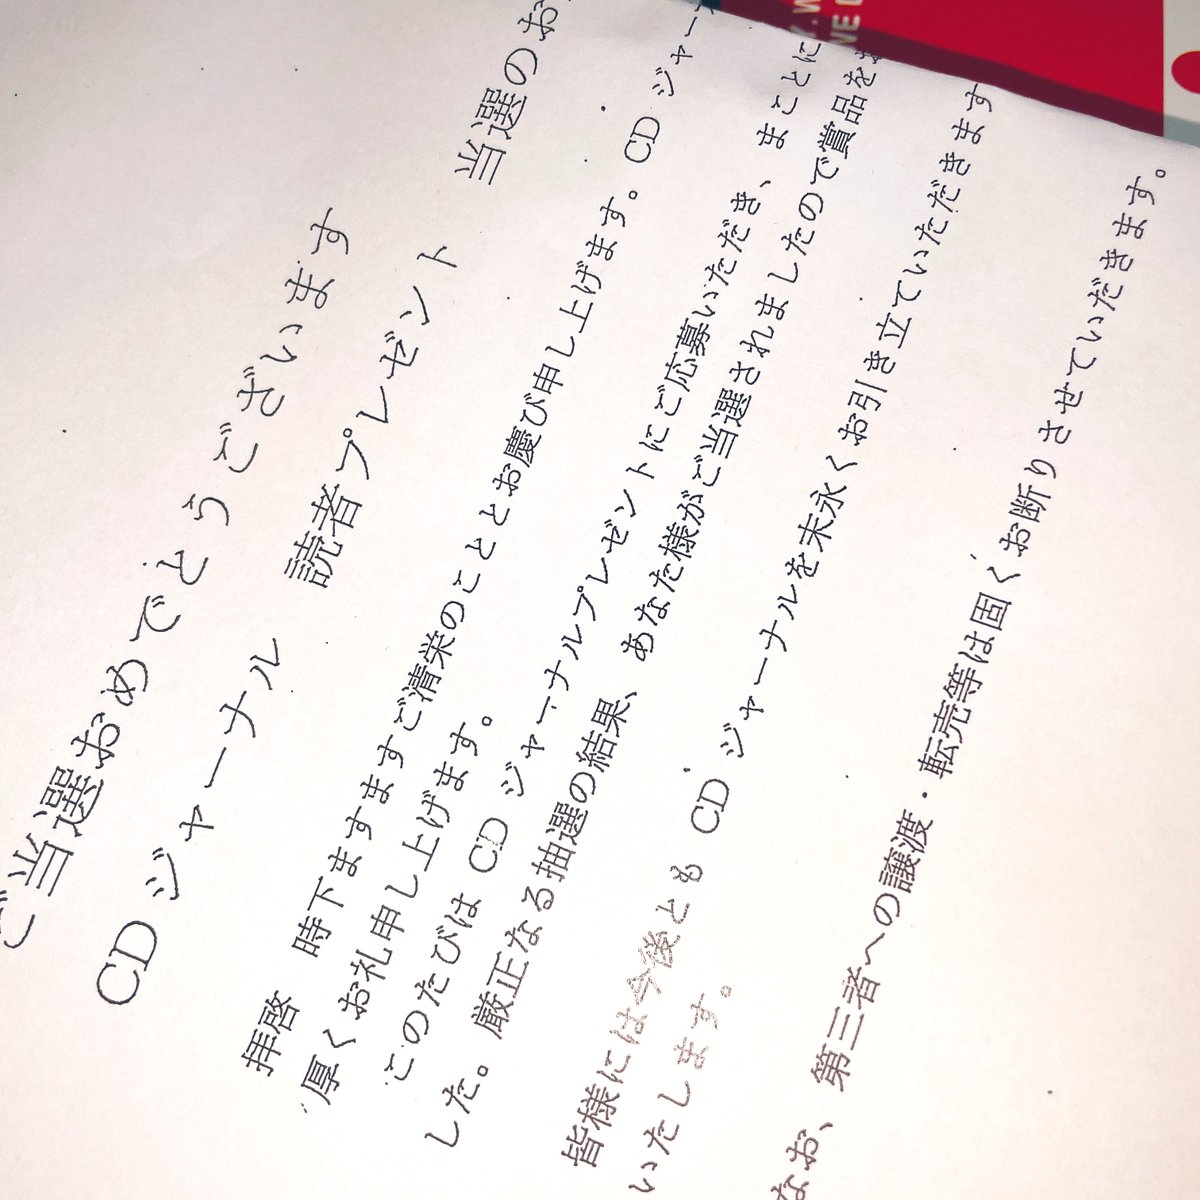 ご当選おめでとうございます
CD ジャーナル 読者プレゼント 当選のお
拝啓 時下ますますご清栄のこととお慶び申し上げます。CD ジャー
厚くお礼申し上げます。
このたびは CD ジャーナルプレゼントにご応募いただき、まことに
した。厳正なる抽選の結果、あなた様がご当選されましたので賞品を
皆様には今後とも CD ジャーナルを末永くお引き立ていただきます
いたします。
なお、第三者への譲渡・転売等は固くお断りさせていだきます。